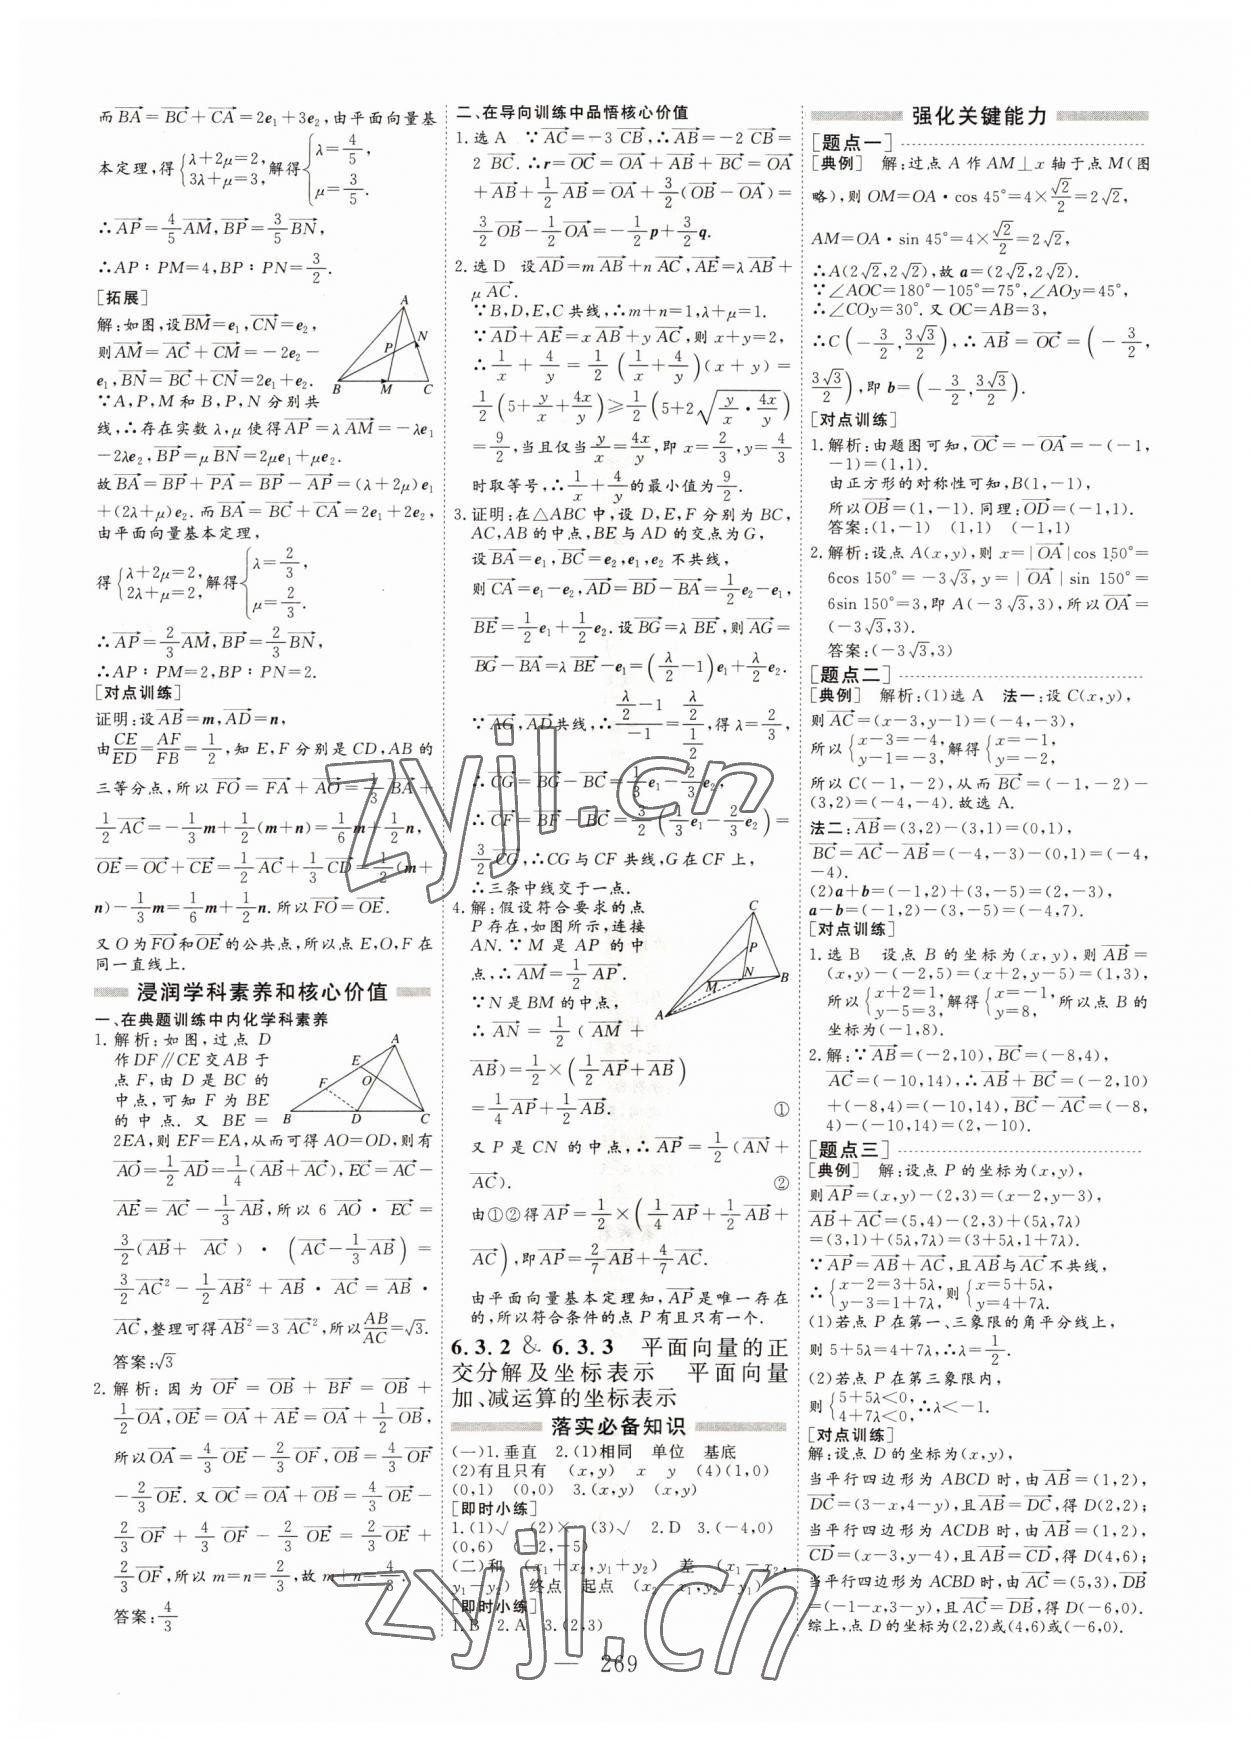 而BA=BC+CA=2e₁+3e₂,由平面向量基
本定理,得{λ+2μ=2, 3λ+μ=3, 解得{λ=4/5, μ=3/5.
∴AP=4/5 AM,BP=3/5 BN,
∴AP∶PM=4,BP∶PN=3/2.
[拓展]
解:如图,设BM=e₁,CN=e₂,
则AM=AC+CM=-2e₂-
e₁,BN=BC+CN=2e₁+e₂.
∵A,P,M和B,P,N分别共
线,∴存在实数λ,μ使得AP=λAM=-λe₁
-2λe₂,BP=μBN=2μe₁+μe₂.
故BA=BP+PA=BP-AP=(λ+2μ)e₁
+(2λ+μ)e₂.而BA=BC+CA=2e₁+2e₂,
由平面向量基本定理,
得{λ+2μ=2, 2λ+μ=2, 解得{λ=2/3, μ=2/3.
∴AP=2/3 AM,BP=2/3 BN,
∴AP∶PM=2,BP∶PN=2.
[对点训练]
证明:设AB=m,AD=n,
由CE/ED=AF/FB=1/2,知E,F分别是CD,AB的
三等分点,所以FO=FA+AO=1/3 BA+
1/2 AC=-1/3 m+1/2(m+n)=1/6 m+1/2 n,
OE=OC+CE=1/2 AC+1/3 CD=1/2(m+
n)-1/3 m=1/6 m+1/2 n.所以FO=OE.
又O为FO和OE的公共点,所以点E,O,F在
同一直线上.
浸润学科素养和核心价值
一、在典题训练中内化学科素养
1.解析:如图,过点D
作DF∥CE交AB于
点F,由D是BC的
中点,可知F为BE
的中点.又BE=
2EA,则EF=EA,从而可得AO=OD,则有
AO=1/2 AD=1/4(AB+AC),EC=AC-
AE=AC-1/3 AB,所以6 AO·EC=
3/2(AB+AC)·(AC-1/3 AB)=
3/2 AC²-1/2 AB²+AB·AC=AB·
AC,整理可得AB²=3 AC²,所以AB/AC=√3.
答案:√3
2.解析:因为OF=OB+BF=OB+
1/2 OA,OE=OA+AE=OA+1/2 OB,
所以OA=4/3 OE-2/3 OF,OB=4/3 OF
-2/3 OE.又OC=OA+OB=4/3 OE-
2/3 OF+4/3 OF-2/3 OE=2/3 OE+
2/3 OF,所以m=n=2/3,故m+n=4/3.
答案:4/3
二、在导向训练中品悟核心价值
1.选A ∵AC=-3 CB,∴AB=-2 CB=
2 BC.∴r=OC=OA+AB+BC=OA
+AB+1/2 AB=OA+3/2(OB-OA)=
3/2 OB-1/2 OA=-1/2 p+3/2 q.
2.选D 设AD=mAB+nAC,AE=λAB+
μAC.
∵B,D,E,C共线,∴m+n=1,λ+μ=1.
∵AD+AE=xAB+yAC,则x+y=2,
∴1/x+4/y=1/2(1/x+4/y)(x+y)=
1/2(5+y/x+4x/y)≥1/2(5+2√(y/x·4x/y))
=9/2,当且仅当y/x=4x/y,即x=2/3,y=4/3
时取等号,∴1/x+4/y的最小值为9/2.
3.证明:在△ABC中,设D,E,F分别为BC,
AC,AB的中点,BE与AD的交点为G,
设BA=e₁,BC=e₂,e₁,e₂不共线,
则CA=e₁-e₂,AD=BD-BA=1/2 e₂-e₁,
BE=1/2 e₁+1/2 e₂.设BG=λBE,则AG=
BG-BA=λBE-e₁=(λ/2-1)e₁+λ/2 e₂.
∵AG,AD共线,∴(λ/2-1)/(-1)=(λ/2)/(1/2),得λ=2/3,
∴CG=BG-BC=1/3 e₁-2/3 e₂,
∴CF=BF-BC=3/2(1/3 e₁-2/3 e₂)=
3/2 CG,∴CG与CF共线,G在CF上,
∴三条中线交于一点.
4.解:假设符合要求的点
P存在,如图所示,连接
AN.∵M是AP的中
点,∴AM=1/2 AP.
∵N是BM的中点,
∴AN=1/2(AM+
AB)=1/2×(1/2 AP+AB)
=1/4 AP+1/2 AB. ①
又P是CN的中点,∴AP=1/2(AN+
AC). ②
由①②得AP=1/2×(1/4 AP+1/2 AB+
AC),即AP=2/7 AB+4/7 AC.
由平面向量基本定理知,AP是唯一存在
的,所以符合条件的点P有且只有一个.
6.3.2 & 6.3.3 平面向量的正
交分解及坐标表示 平面向量
加、减运算的坐标表示
落实必备知识
(一)1.垂直 2.(1)相同 单位 基底
(2)有且只有 (x,y) x y (4)(1,0)
(0,1) (0,0) 3.(x,y) (x,y)
[即时小练]
1.(1)√ (2)× (3)√ 2.D 3.(-4,0)
(0,6) (-2,-5)
(二)和 (x₁+x₂,y₁+y₂) 差 (x₁-x₂,
y₁-y₂) 终点 起点 (x₂-x₁,y₂-y₁)
[即时小练]
1.B 2.A 3.(2,3)
强化关键能力
[题点一]
[典例] 解:过点A作AM⊥x轴于点M(图
略),则OM=OA·cos 45°=4×√2/2=2√2,
AM=OA·sin 45°=4×√2/2=2√2,
∴A(2√2,2√2),故a=(2√2,2√2).
∵∠AOC=180°-105°=75°,∠AOy=45°,
∴∠COy=30°.又OC=AB=3,
∴C(-3/2,3√3/2),∴AB=OC=(-3/2,
3√3/2),即b=(-3/2,3√3/2).
[对点训练]
1.解析:由题图可知,OC=-OA=-(-1,
-1)=(1,1).
由正方形的对称性可知,B(1,-1),
所以OB=(1,-1).同理:OD=(-1,1).
答案:(1,-1) (1,1) (-1,1)
2.解析:设点A(x,y),则x=|OA|cos 150°=
6cos 150°=-3√3,y=|OA|sin 150°=
6sin 150°=3,即A(-3√3,3),所以OA=
(-3√3,3).
答案:(-3√3,3)
[题点二]
[典例] 解析:(1)选A 法一:设C(x,y),
则AC=(x-3,y-1)=(-4,-3),
所以{x-3=-4, y-1=-3, 解得{x=-1, y=-2,
所以C(-1,-2),从而BC=(-1,-2)-
(3,2)=(-4,-4).故选A.
法二:AB=(3,2)-(3,1)=(0,1),
BC=AC-AB=(-4,-3)-(0,1)=(-4,
-4).
(2)a+b=(-1,2)+(3,-5)=(2,-3),
a-b=(-1,2)-(3,-5)=(-4,7).
[对点训练]
1.选B 设点B的坐标为(x,y),则AB=
(x,y)-(-2,5)=(x+2,y-5)=(1,3),
所以{x+2=1, y-5=3, 解得{x=-1, y=8, 所以点B的
坐标为(-1,8).
2.解:∵AB=(-2,10),BC=(-8,4),
AC=(-10,14),∴AB+BC=(-2,10)
+(-8,4)=(-10,14),BC-AC=(-8,
4)-(-10,14)=(2,-10).
[题点三]
[典例] 解:设点P的坐标为(x,y),
则AP=(x,y)-(2,3)=(x-2,y-3),
AB+AC=(5,4)-(2,3)+(5λ,7λ)
=(3,1)+(5λ,7λ)=(3+5λ,1+7λ).
∵AP=AB+AC,且AB与AC不共线,
∴{x-2=3+5λ, y-3=1+7λ, 则{x=5+5λ, y=4+7λ.
(1)若点P在第一、三象限的角平分线上,
则5+5λ=4+7λ,∴λ=1/2.
(2)若点P在第三象限内,
则{5+5λ<0, 4+7λ<0, ∴λ<-1.
[对点训练]
解:设点D的坐标为(x,y),
当平行四边形为ABCD时,由AB=(1,2),
DC=(3-x,4-y),且AB=DC,得D(2,2);
当平行四边形为ACDB时,由AB=(1,2),
CD=(x-3,y-4),且AB=CD,得D(4,6);
当平行四边形为ACBD时,由AC=(5,3),DB
=(-1-x,3-y),且AC=DB,得D(-6,0).
综上,点D的坐标为(2,2)或(4,6)或(-6,0).
269
zyjl.cn
zyjl.cn